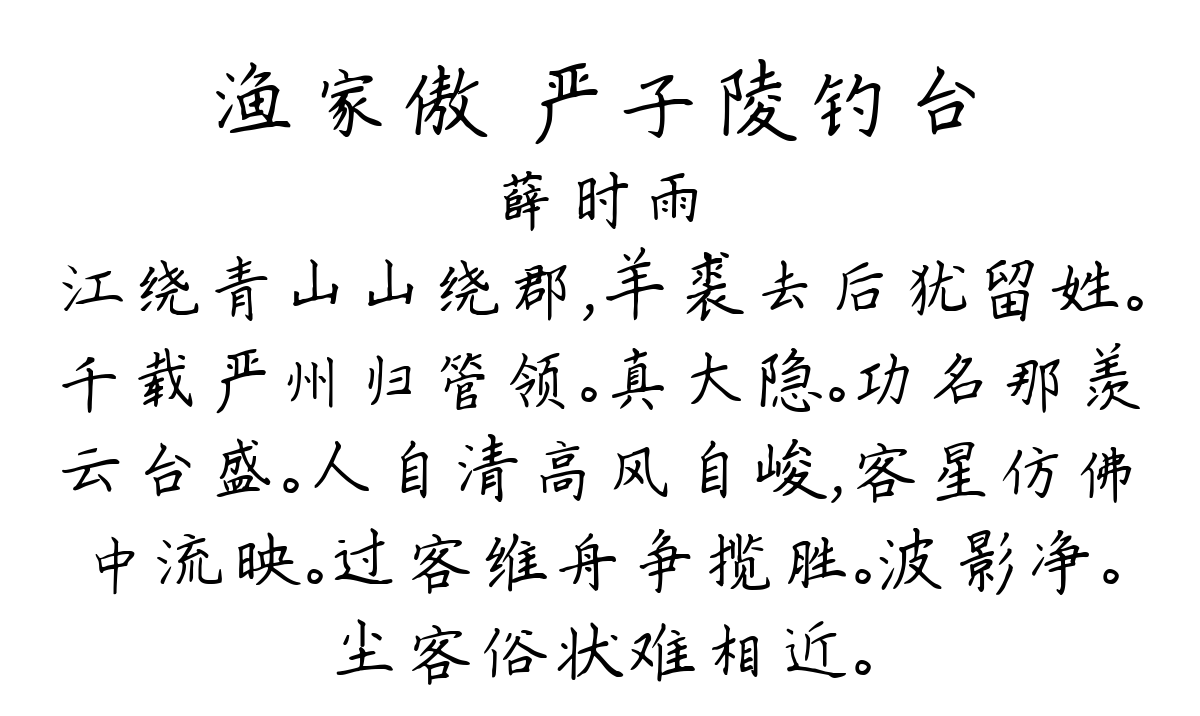 渔家傲 严子陵钓台
薛时雨
江绕青山山绕郡,羊裘去后犹留姓。
千载严州归管领。真大隐。功名那羡
云台盛。人自清高风自峻,客星仿佛
中流映。过客维舟争揽胜。波影净。
尘客俗状难相近。